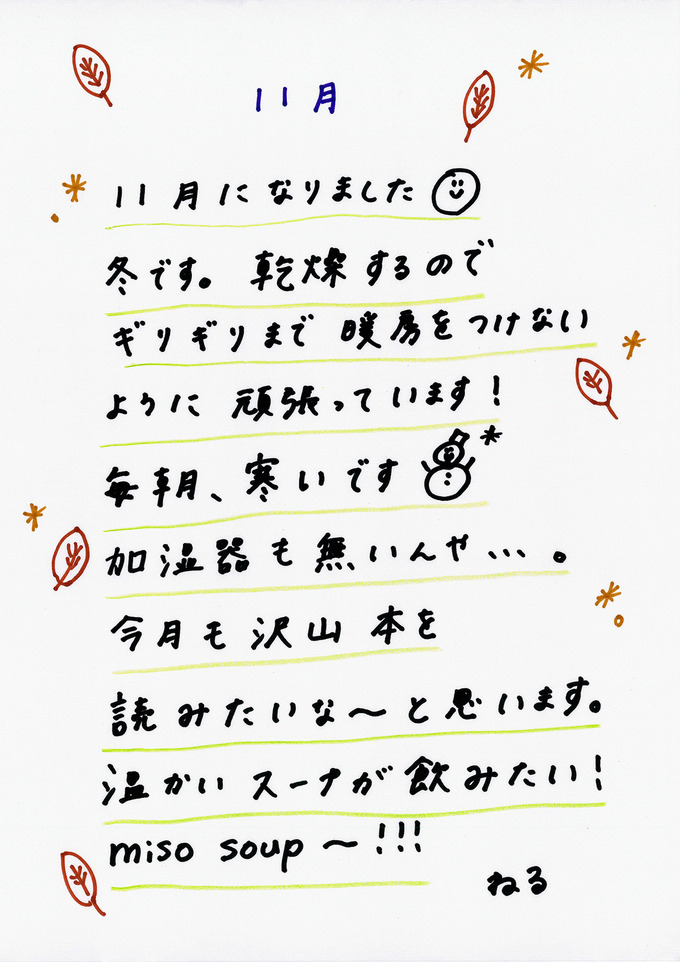 11月
11月になりました
冬です。乾燥するので
ギリギリまで暖房をつけない
ように頑張っています！
毎朝、寒いです
加湿器も無いんや…。
今月も沢山本を
読みたいな〜と思います。
温かいスープが飲みたい！
miso soup〜!!!
ねる